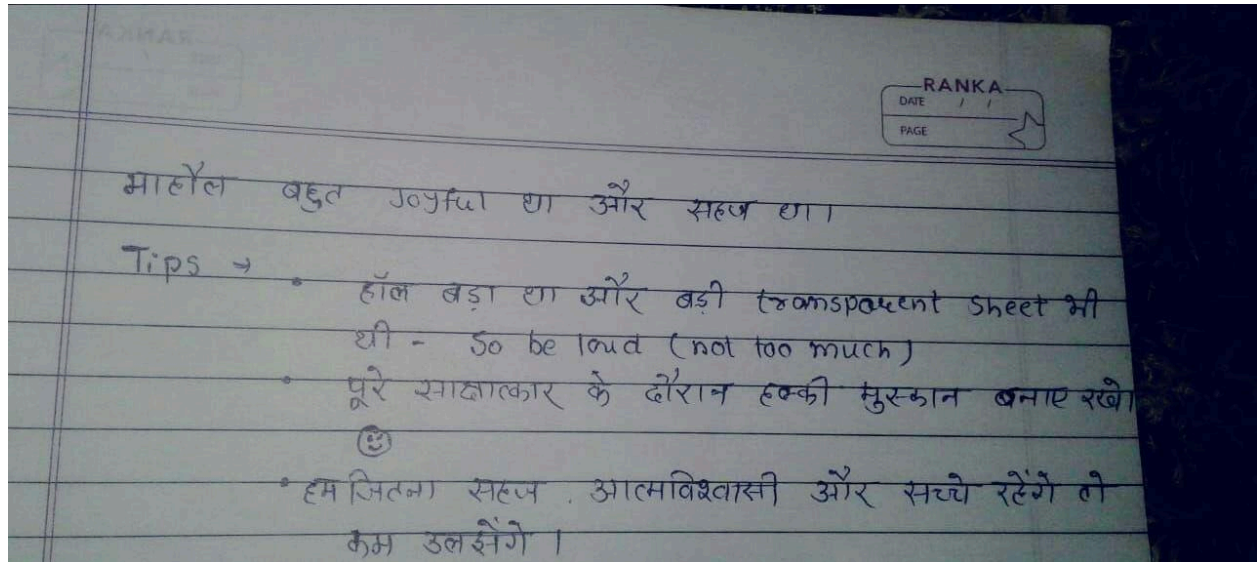 RANKA
DATE / /
PAGE
माहौल बहुत Joyful था और सहज था।
Tips → • हॉल बड़ा था और बड़ी transparent sheet भी
थी - So be loud (not too much)
• पूरे साक्षात्कार के दौरान हल्की मुस्कान बनाए रखो
• हम जितना सहज, आत्मविश्वासी और सच्चे रहेंगे तो
कम उलझेंगे।